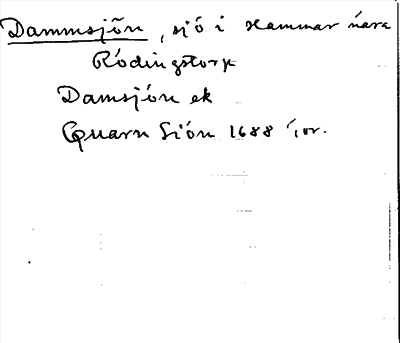 Dammsjön, sjö i Hammar nära
Rödingstorp
Damsjön ek
Quarn Siön 1688 jor.